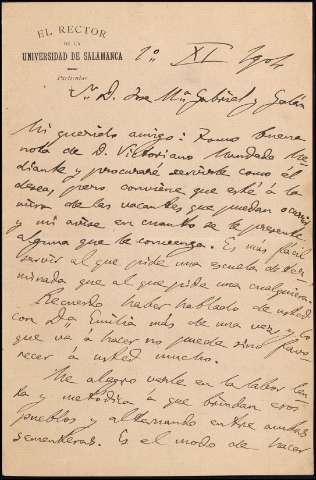 EL RECTOR
DE LA
UNIVERSIDAD DE SALAMANCA
Particular
1º XI 1904
Sr. D. Jose Mª Gabriel y Galán
Mi querido amigo: Tomo buena
nota de D. Victoriano Mundado Me-
diante y procuraré servirle como él
desea, pero conviene que esté á la
mira de las vacantes que puedan ocurrir
y me avise en cuanto se le presente
alguna que le convenga. Es más fácil
servir al que pide una escuela deter-
minada que al que pide una cualquiera.
Recuerdo haber hablado de usted
con Dña Emilia más de una vez y lo
que va á hacer no puede sino favo-
recer á usted mucho.
Me alegro verle en la labor len-
ta y metódica á que brindan esos
pueblos y alternando entre ambas
sementeras. Es el modo de hacer